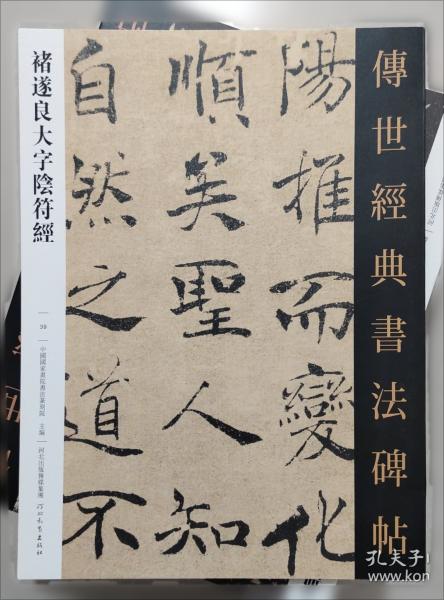 傳世經典書法碑帖
陽推而變化
順矣聖人知
自然之道不
褚遂良大字陰符經
99
中國國家畫院書法篆刻院 主編
河北出版傳媒集團
河北教育出版社
孔夫子
book.kongfz.com